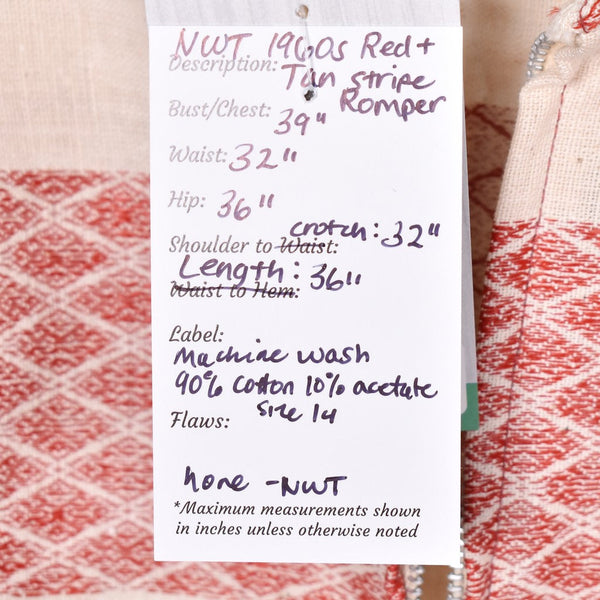 NWT 1960s Red +
Description: Tan stripe
Romper
Bust/Chest: 39"
Waist: 32"
Hip: 36"
crotch: 32"
Shoulder to Waist:
Length: 36"
Waist to Hem:
Label:
Machine wash
90% cotton 10% acetate
size 14
Flaws:
none - NWT
*Maximum measurements shown
in inches unless otherwise noted